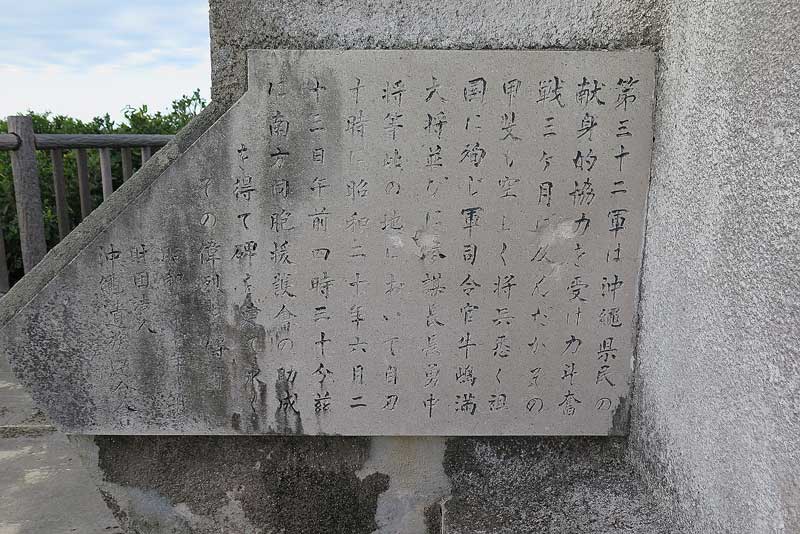 第三十二軍は沖縄県民の
献身的協力を受け力斗奮
戦三ヶ月に及んだがその
甲斐も空しく将兵悉く祖
国に殉じ軍司令官牛嶋満
大将並びに参謀長長勇中
将等此の地において自刃
十時に昭和二十年六月二
十三日午前四時三十分茲
に南方同胞援護会の助成
を得て碑を建て永く
その偉烈を
昭和
財団法人
沖縄